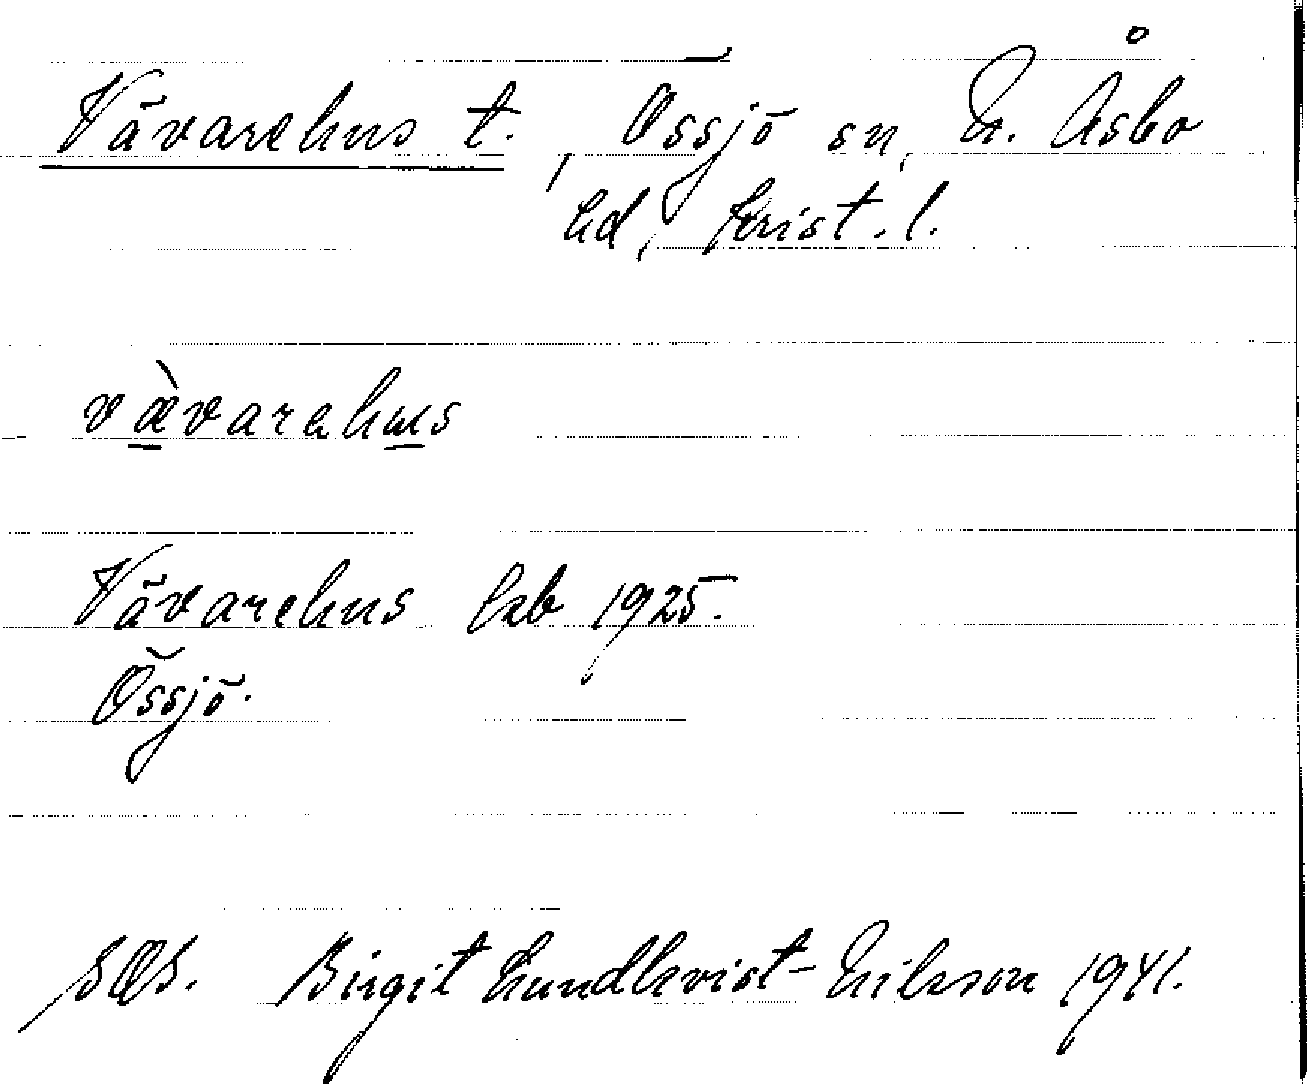 Vävarehus t., Össjö sn, N. Åsbo
hd, Krist. l.
vævarahus
Vävarehus Jrb 1925.
Össjö.
SOS. Birgit Lundkvist-Nilsson 1941.